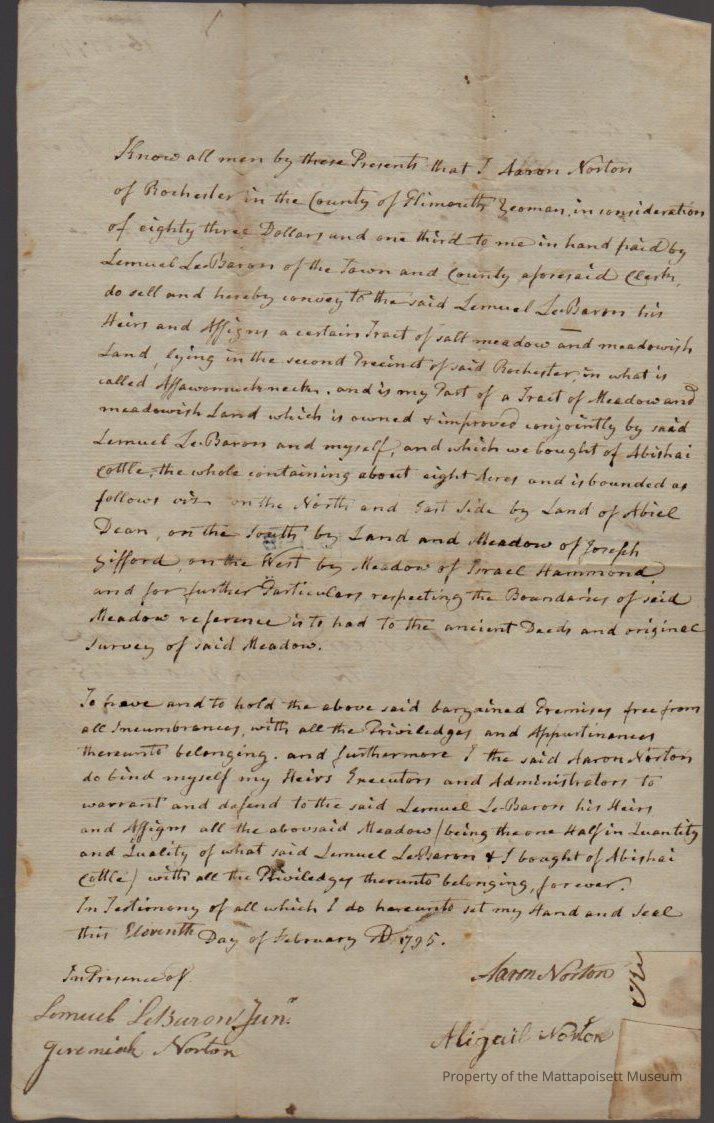 Know all men by these Presents that I Aaron Norton
of Rochester in the County of Plimouth Yeoman, in consideration
of eighty three Dollars and one third to me in hand paid by
Lemuel LeBaron of the Town and County aforesaid Clerk,
do sell and hereby convey to the said Lemuel LeBaron his
Heirs and Assigns a certain Tract of salt meadow and meadowish
Land, lying in the second Precinct of said Rochester, in what is
called neck, and is my Part of a Tract of Meadow and
meadowish Land which is owned & improved conjointly by said
Lemuel LeBaron and myself, and which we bought of Abishai
Cottle, the whole containing about eight Acres and is bounded as
follows viz on the North and East Side by Land of Abiel
Dean, on the South by Land and Meadow of Joseph
Gifford, on the West by Meadow of Israel Hammond,
and for further Particulars respecting the Boundaries of said
Meadow reference is to had to the ancient Deeds and original
Survey of said Meadow.
To have and to hold the above said bargained Premises free from
all Incumbrances, with all the Priviledges and Appurtinances
thereunto belonging. and furthermore I the said Aaron Norton
do bind myself my Heirs Executors and Administrators to
warrant and defend to the said Lemuel LeBaron his Heirs
and Assigns all the abovsaid Meadow (being the one Half in Quantity
and Quality of what said Lemuel LeBaron & I bought of Abishai
Cottle) with all the Priviledges therunto belonging, forever.
In Testimony of all which I do hereunto set my Hand and Seal
this Eleventh Day of February AD. 1795.
In Presence of
Aaron Norton
Lemuel LeBaron Junr.
Abigail Norton
Jeremiah Norton
Property of the Mattapoisett Museum